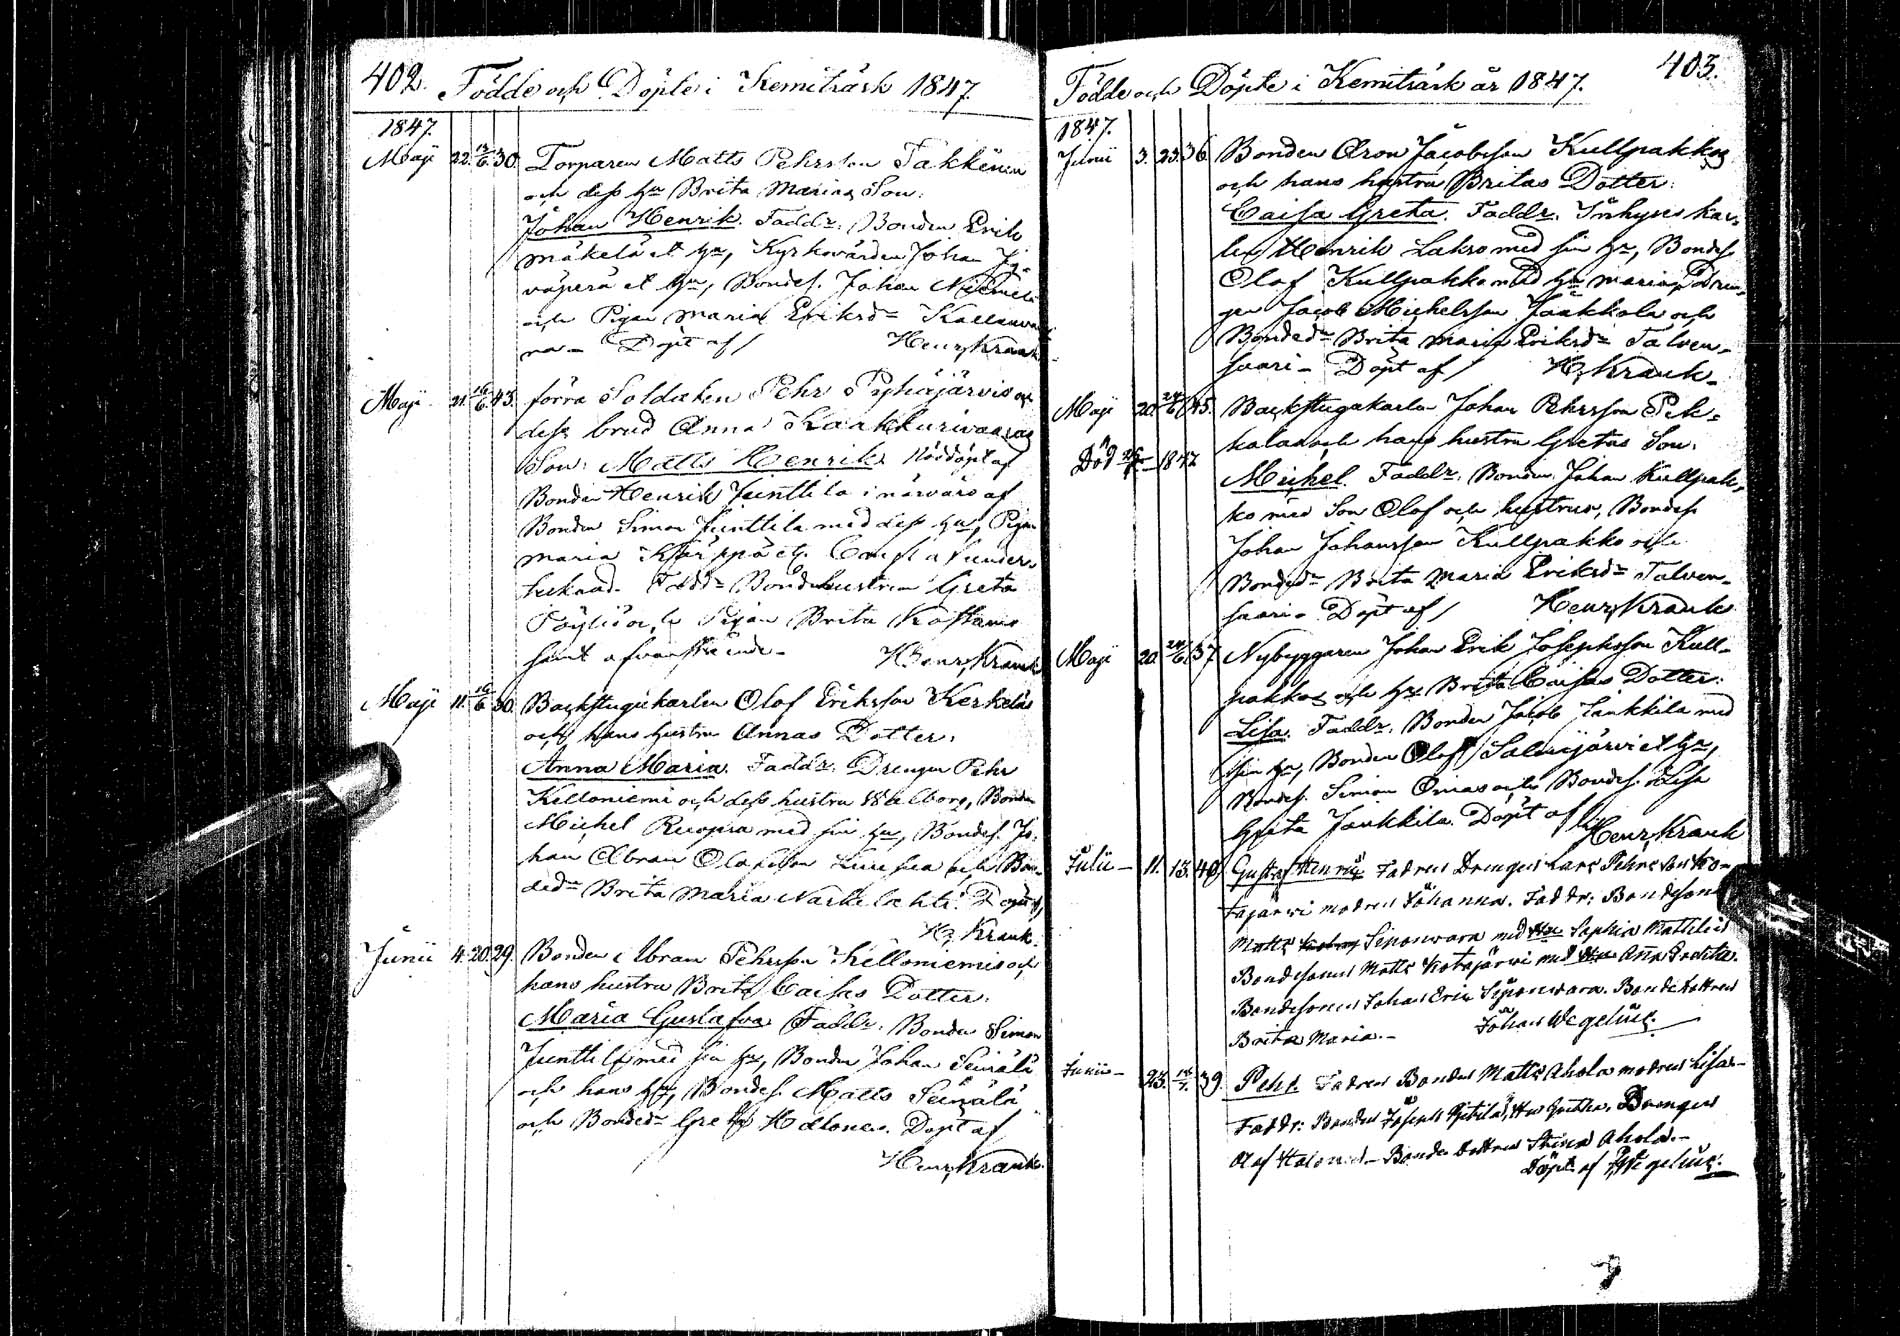 402. Födde och Döpte i Kemiträsk 1847.
1847.
Maji 22. 13/6. 30. Torparen Matts Pehrsson Takkinen
och dess hu Brita Marias Son:
Johan Henrik. Faddr: Bonden Erik
Mäkelä et hu, Kyrkovärden Johan Jy-
väperä et hu, Bondes. Johan Niemelä
och Pigan Maria Eriksdr Kallanva
ra - Döpt af / Henr. Krank
Maji 21. 16/6. 43. förra Soldaten Pehr Pyhäjärvis och
dess brud Anna Kaakkurivaaras
Son: Matts Henrik. Nöddöpt af
Bonden Henrik Junttila i närvaro af
Bonden Simon Junttila med dess hu, Pigan
Maria Kärppä etc.
Faddr Bondehustrun Greta
Pöyliö och Pigan Brita
samt ofvanstående - Henr. Krank
Maji 11. 16/6. 30. Backstugukarlen Olof Eriksson Kerkeläs
och hans hustru Annas Dotter:
Anna Maria. Faddr: Drengen Pehr
Kelloniemi och dess hustru Walborg, Bonden
Michel Ruopsa med sin hu, Bondes. Jo-
han Abram Olofsson Luusua och Bon-
dedr Brita Maria Narkilahti. Döpt af,
H. Krank.
Junii 4. 20. 29. Bonden Abram Pehrsson Kelloniemis och
hans hustru Brita Caisas Dotter:
Maria Gustafva. Faddr: Bonden Simon
Junttila med sin hu, Bonden Johan Seinälä
och hans hu, Bondes. Matts Seinälä
och Bondedr Greta Halonen. Döpt af
Henr. Krank.
403.
Födde och Döpte i Kemiträsk år 1847.
1847.
Junii 3. 23. 36. Bonden Aron Jacobsson Kullpakkos
och hans hustru Britas Dotter:
Caisa Greta. Faddr: Inhyses kar-
len Henrik Lakso med sin hu, Bondes.
Olof Kullpakko med hu Maria, Dren-
gen Jacob Michelsson Jaakkola och
Bondedr Brita Maria Eriksdr Talven-
saari - Döpt af / H. Krank -
Maji 20. 24/6. 45. Backstugukarlen Johan Pehrsson Pek-
kalas och hans hustru Gretas Son:
Död 1847
Michel. Faddr: Bonden Johan Kullpak-
ko med Son Olof och hustrur, Bondes.
Johan Johansson Kullpakko och
Bondedr Brita Maria Eriksdr Talven-
saari - Döpt af / Henr. Krank
Maji 20. 24/6. 37. Nybyggaren Johan Erik Josephsson Kull-
pakkos och hu Brita Caisas Dotter:
Lisa. Faddr: Bonden Jacob Jankkila med
sin hu, Bonden Olof Salmijärvi et hu,
Bondes. Simon Oinas och Bondes. Lisa
Greta Jankkila. Döpt af Henr. Krank
Julii - 11. 13. 40. Gustaf Henric Fadren Drengen Lars Pehrsson Ko-
tajärvi modren Johanna. Faddr: Bondesonen
Matts Siponwara med Hu Sophia Mathilda
Bondesonen Matts Kotajärvi med Hu Anna Brita.
Bondesonen Johan Eric Siponwara. Bondedottren
Brita Maria. - Johan Wegelius.
Junii - 23. 39. Pehr. Fadren Bonden Matts Ahola modren Lisa -
Faddr: Bonden Joseph Hu Gretha. Drengen
Olof Halonen - Bonde dottren Stina Ahola. -
Döpt af J. Wegelius.